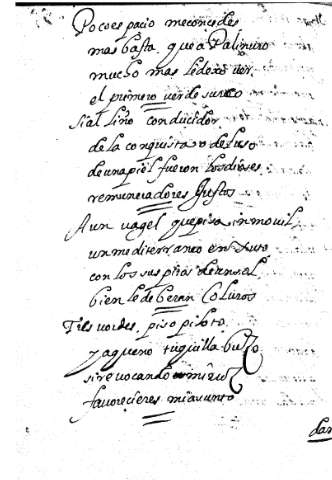 Poco espacio me concedes
mas basta, que a Palinuro
mucho mas le dexo ver
el primero verde surco
Si al lino conducidor
de la conquista o de l uso
de una piel fueron los dioses
remuneradores justos
A un vagel que pisa inmovil
un mediterraneo enxuto
con los suspiros de un sol
bien le deberan Coluros
Tus bordes, piso piloto
y aque no tu quilla buzo
si revocando mi voz
favorecieres mi asunto
dan